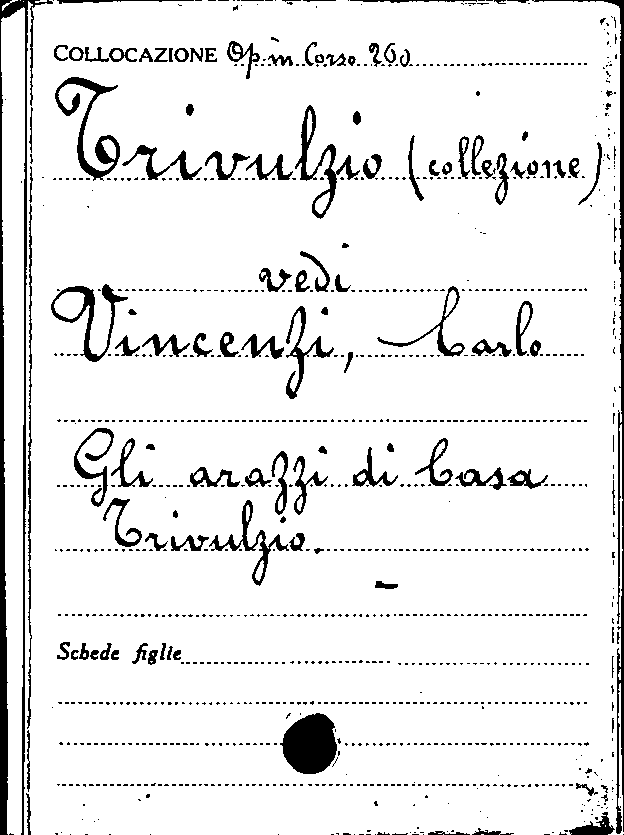 COLLOCAZIONE Op. in Corso 260
Trivulzio (collezione)
vedi
Vincenzi, Carlo
Gli arazzi di Casa
Trivulzio.
Schede figlie